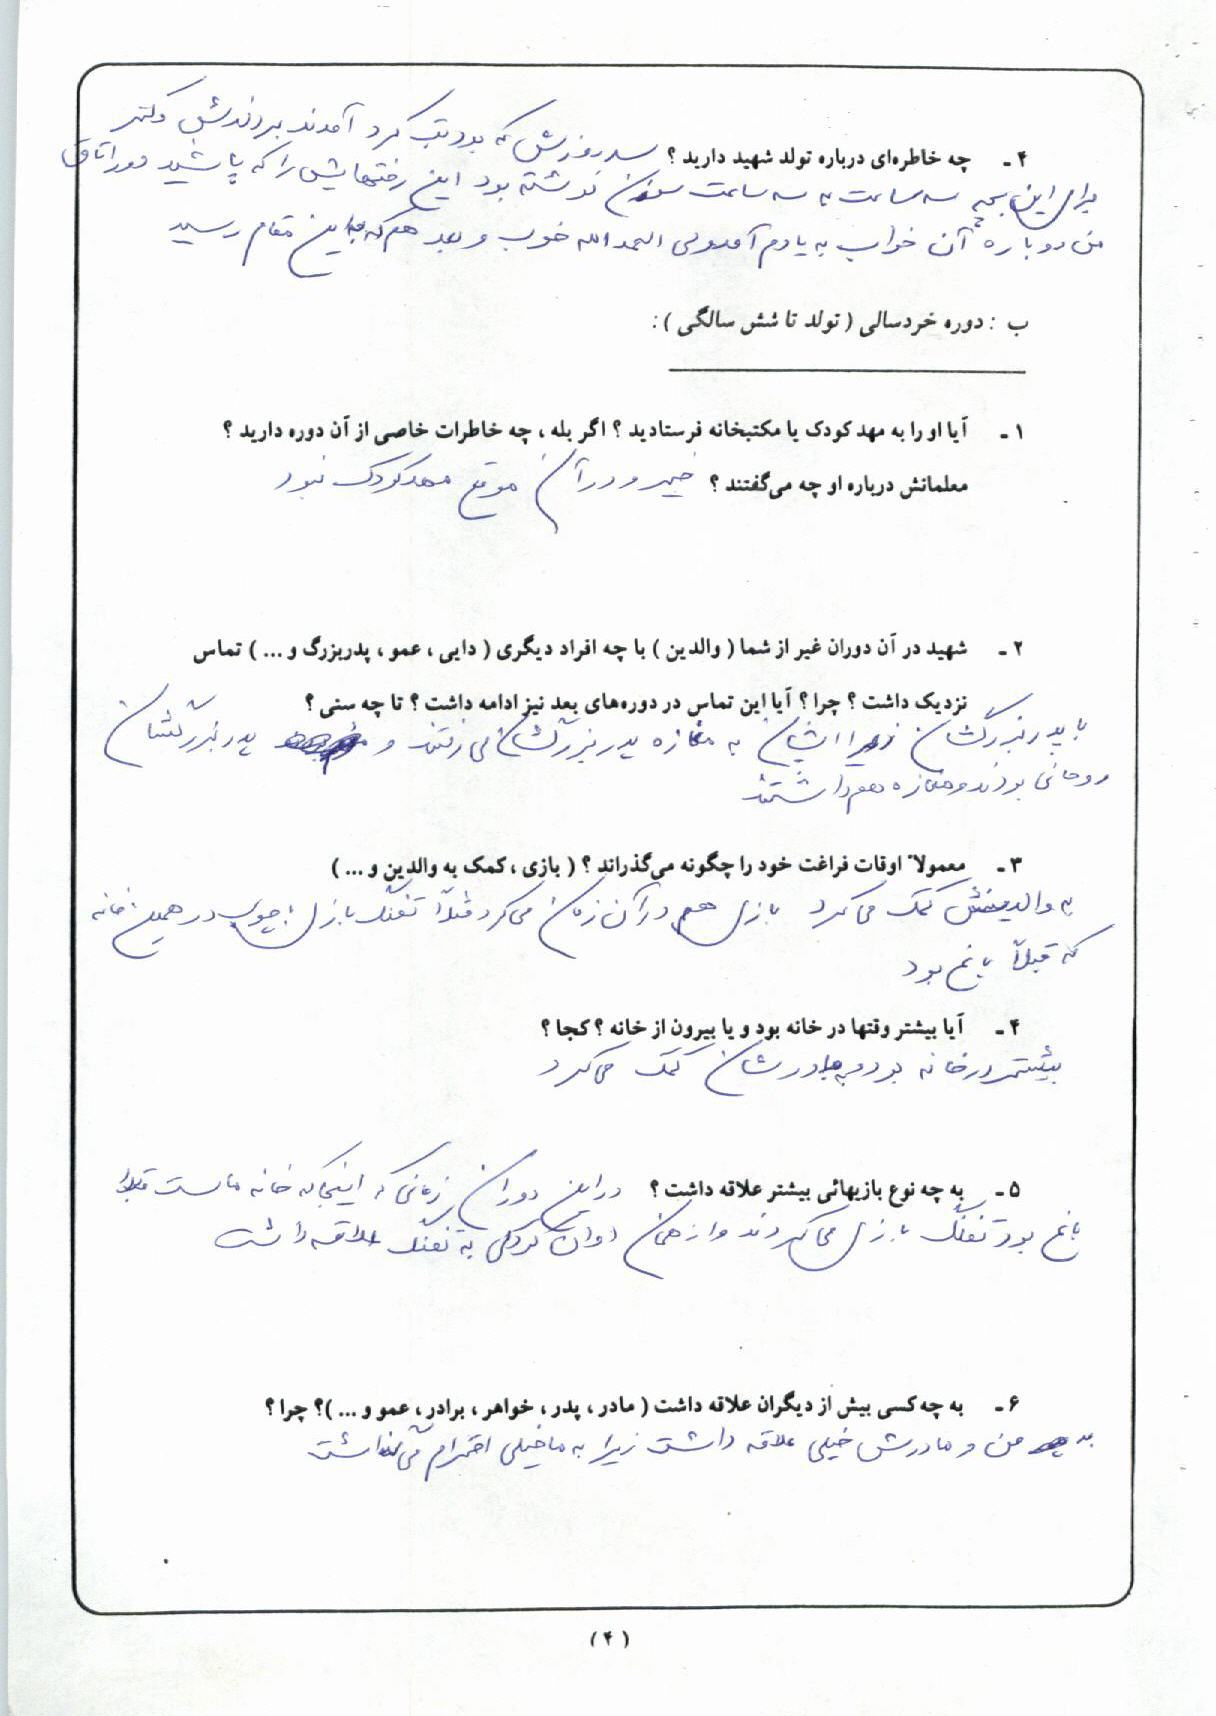 ۴ - چه خاطره‌ای درباره تولد شهید دارید ؟ سه روزش که بود تب کرد آمدند بردندش دکتر
برای این بچه سه ساعت به سه ساعت سوزن نوشته بود این رختهایش را که پاشید دور اتاق
من دوباره آن خواب به یادم آمد ولی الحمدالله خوب و بعد هم که به این مقام رسید
ب : دوره خردسالی ( تولد تا شش سالگی ) :
۱ - آیا او را به مهد کودک یا مکتبخانه فرستادید ؟ اگر بله ، چه خاطرات خاصی از آن دوره دارید ؟
معلمانش درباره او چه می‌گفتند ؟ خیر و در آن موقع مهدکودک نبود
۲ - شهید در آن دوران غیر از شما ( والدین ) با چه افراد دیگری ( دایی ، عمو ، پدربزرگ و ... ) تماس
نزدیک داشت ؟ چرا ؟ آیا این تماس در دوره‌های بعد نیز ادامه داشت ؟ تا چه سنی ؟
با پدربزرگشان زیرا ایشان به مغازه پدربزرگشان می رفتند و پدربزرگشان
روحانی بودند و مغازه هم داشتند
۳ - معمولاً اوقات فراغت خود را چگونه می‌گذراند ؟ ( بازی ، کمک به والدین و ... )
به والدینش کمک می کرد بازی هم در آن زمان می کرد مثلاً تفنگ بازی با چوب در همین خانه
که قبلاً باغ بود
۴ - آیا بیشتر وقتها در خانه بود و یا بیرون از خانه ؟ کجا ؟
بیشتر در خانه بود و به مادرشان کمک می کرد
۵ - به چه نوع بازیهائی بیشتر علاقه داشت ؟ در این دوران زمانی که اینجا که خانه ماست قبلا
باغ بود تفنگ بازی می کردند و از همان اوان کودکی به تفنگ علاقه داشت
۶ - به چه کسی بیش از دیگران علاقه داشت ( مادر ، پدر ، خواهر ، برادر ، عمو و ... )؟ چرا ؟
به من و مادرش خیلی علاقه داشت زیرا به ما خیلی احترام می گذاشت
( ۴ )